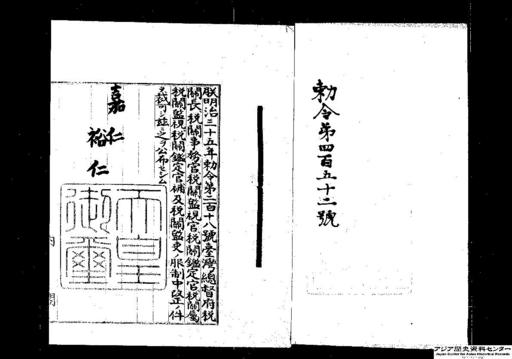 勅令第四百五十二號
朕明治三十五年勅令第二百十八號臺灣總督府稅
關長稅關事務官稅關監視官稅關鑑定官稅關屬
稅關監視稅關鑑定官補及稅關監吏服制中改正ノ件
ヲ裁可シ玆ニ之ヲ公布セシム
嘉仁
裕仁
天皇
御璽
内閣
アジア歴史資料センター
Japan Center for Asian Historical Records